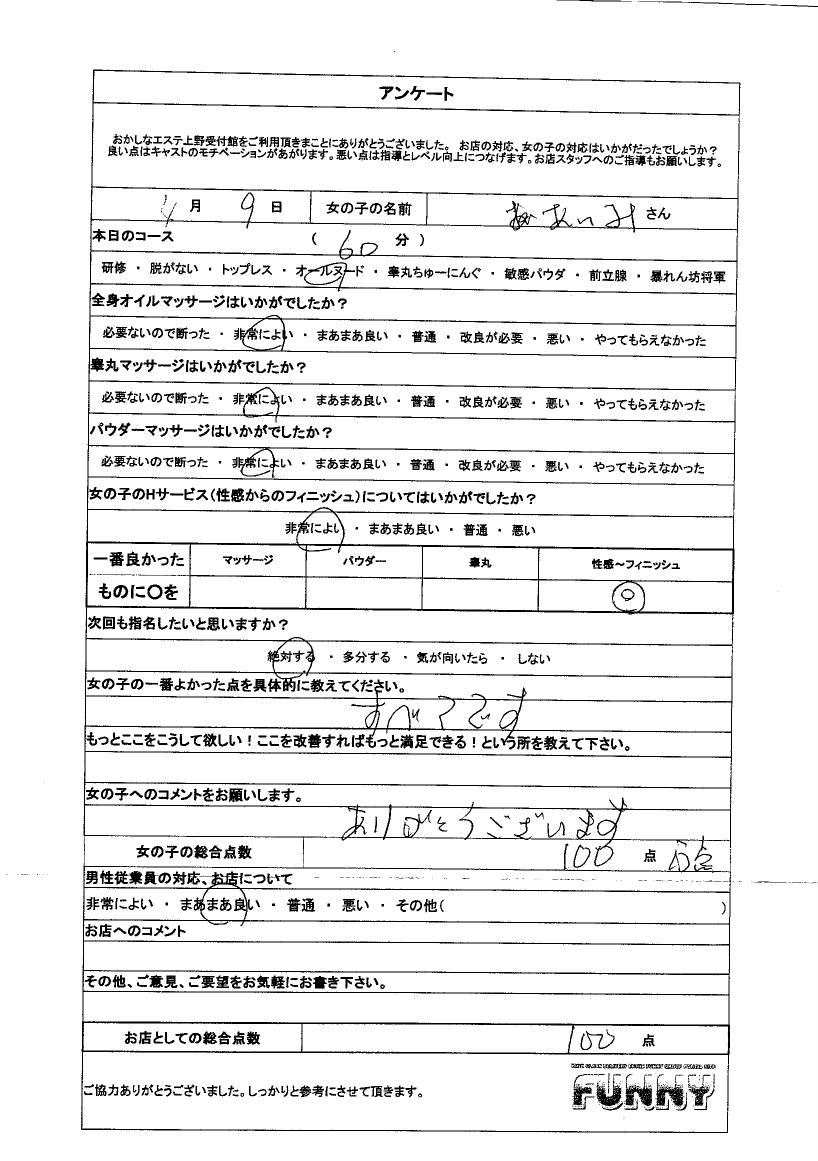 アンケート
おかしなエステ上野受付館をご利用頂きまことにありがとうございました。 お店の対応、女の子の対応はいかがだったでしょうか?
良い点はキャストのモチベーションがあがります。悪い点は指導とレベル向上につなげます。お店スタッフへのご指導もお願いします。
4 月 9 日 女の子の名前 さん
本日のコース ( 60 分 )
研修 ・ 脱がない ・ トップレス ・ オールヌード ・ 睾丸ちゅーにんぐ ・ 敏感パウダ ・ 前立腺 ・ 暴れん坊将軍
全身オイルマッサージはいかがでしたか?
必要ないので断った ・ 非常によい ・ まあまあ良い ・ 普通 ・ 改良が必要 ・ 悪い ・ やってもらえなかった
睾丸マッサージはいかがでしたか?
必要ないので断った ・ 非常によい ・ まあまあ良い ・ 普通 ・ 改良が必要 ・ 悪い ・ やってもらえなかった
パウダーマッサージはいかがでしたか?
必要ないので断った ・ 非常によい ・ まあまあ良い ・ 普通 ・ 改良が必要 ・ 悪い ・ やってもらえなかった
女の子のHサービス(性感からのフィニッシュ)についてはいかがでしたか?
非常によい ・ まあまあ良い ・ 普通 ・ 悪い
一番良かった マッサージ パウダー 睾丸 性感~フィニッシュ
ものに〇を ◎
次回も指名したいと思いますか?
絶対する ・ 多分する ・ 気が向いたら ・ しない
女の子の一番よかった点を具体的に教えてください。
すべてです
もっとここをこうして欲しい!ここを改善すればもっと満足できる!という所を教えて下さい。
女の子へのコメントをお願いします。
ありがとうございます
女の子の総合点数 100 点
男性従業員の対応、お店について
非常によい ・ まあまあ良い ・ 普通 ・ 悪い ・ その他( )
お店へのコメント
その他、ご意見、ご要望をお気軽にお書き下さい。
お店としての総合点数 100 点
ご協力ありがとうございました。しっかりと参考にさせて頂きます。
FUNNY